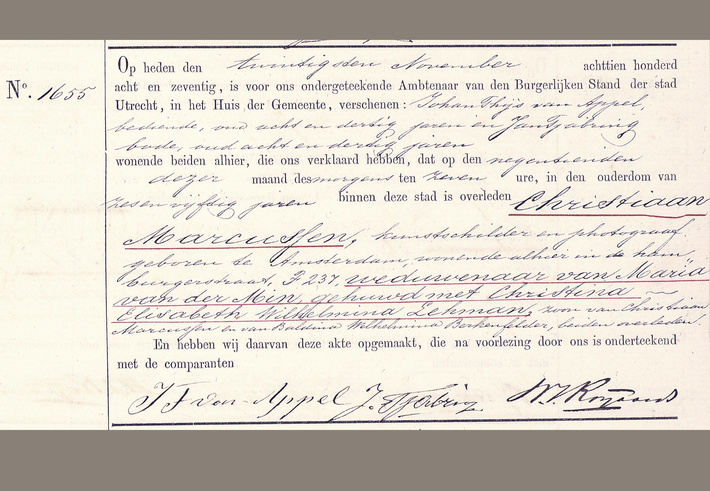 No. 1655
Op heden den twintigsten November achttien honderd
acht en zeventig, is voor ons ondergeteekende Ambtenaar van den Burgerlijken Stand der stad
Utrecht, in het Huis der Gemeente, verschenen: Johan Thijs van Appel,
bediende, oud acht en dertig jaren en Jan Tjabring
bode, oud acht en dertig jaren
wonende beiden alhier, die ons verklaard hebben, dat op den negentienden
dezer maand des morgens ten zeven ure, in den ouderdom van
zes en vijftig jaren binnen deze stad is overleden Christiaan
Marcussen, kunstschilder en photograaf
geboren te Amsterdam, wonende alhier in de ham
burgerstraat, F 237, weduwenaar van Maria
van der Min, gehuwd met Christina
Elisabeth Wilhelmina Lehman, zoon van Christiaan
Marcussen en van Wilhelmina beiden overleden.
En hebben wij daarvan deze akte opgemaakt, die na voorlezing door ons is onderteekend
met de comparanten
van Appel J. Tjabring